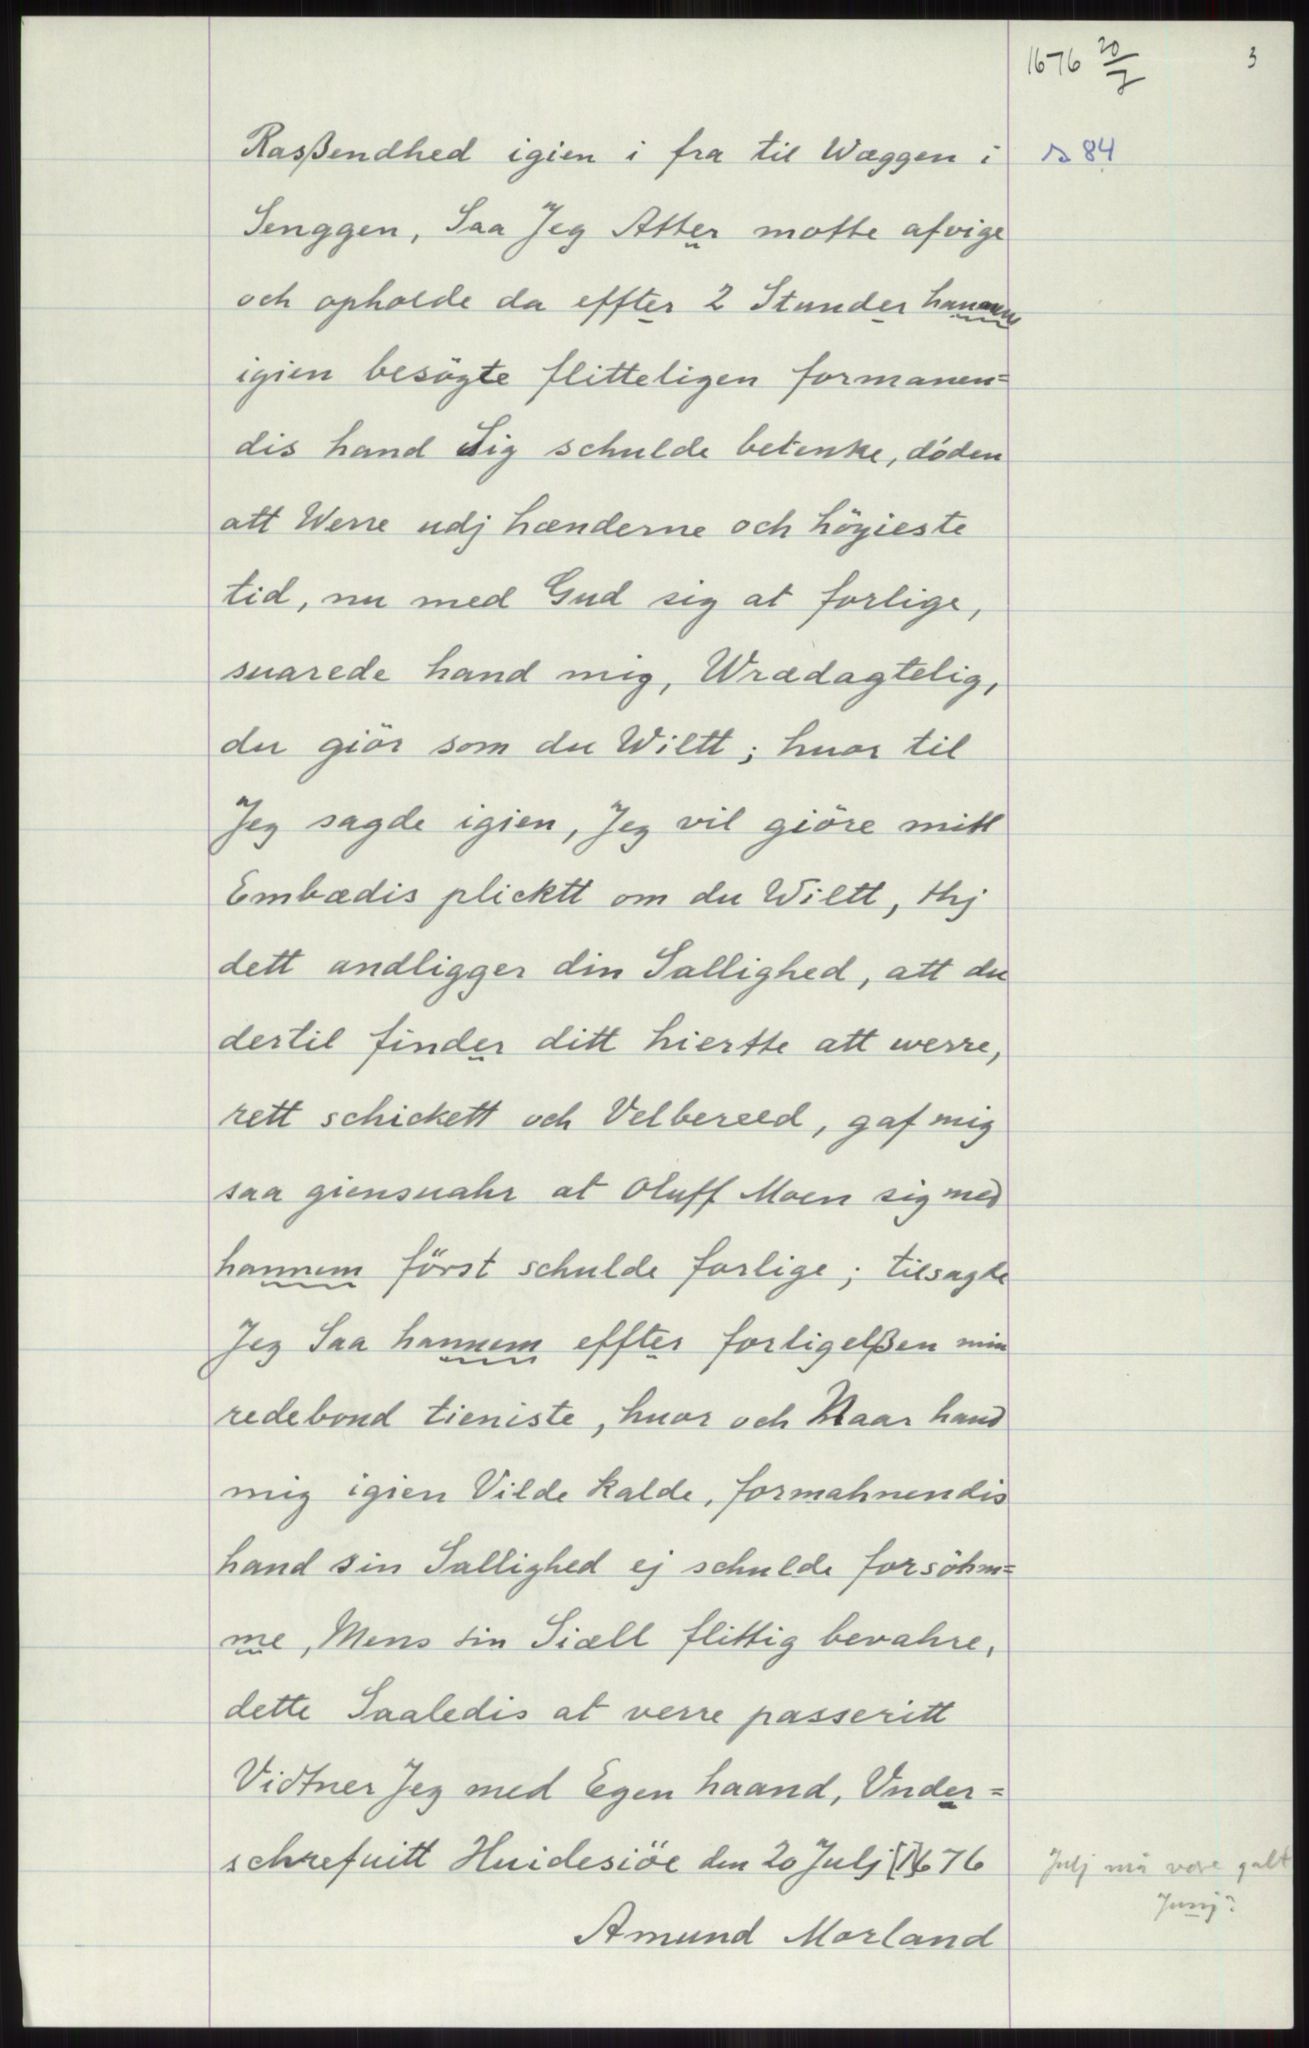 1676 20/7 3
Rasßendhed igien i fra til Wæggen i s 84
Senggen, Saa Jeg Atter motte afvige
och opholde da effter 2 Stunder hannem
igien besögte flitteligen formanen=
dis hand Sig schulde betenke, döden
att Werre udj hænderne och höyieste
tid, nu med Gud sig at forlige,
suarede hand mig, Wrædagtelig,
du giör som du Wiltt; huor til
Jeg sagde igien, Jeg vil giöre mitt
Embædis plicktt om du Wiltt, thj
dett andligger din Sallighed, att du
dertil finder ditt hiertte att werre,
rett schickett och Velbereed, gaf mig
saa giensuahr at Oluff Moen sig med
hannem först schulde forlige; tilsagde
Jeg Saa hannem effter forligelßen min
redebond tieniste, huor och Naar hand
mig igien Vilde kalde, formahnendis
hand sin Sallighed ej schulde forsöhm=
me, Mens sin Siæll flittig bevahre,
dette Saaledis at verre passeritt
Vidtner Jeg med Egen haand, Vnder=
schrefuitt Huidesiöe den 20 Julj [1]676
Julj må være galt
Junj?
Amund Morland